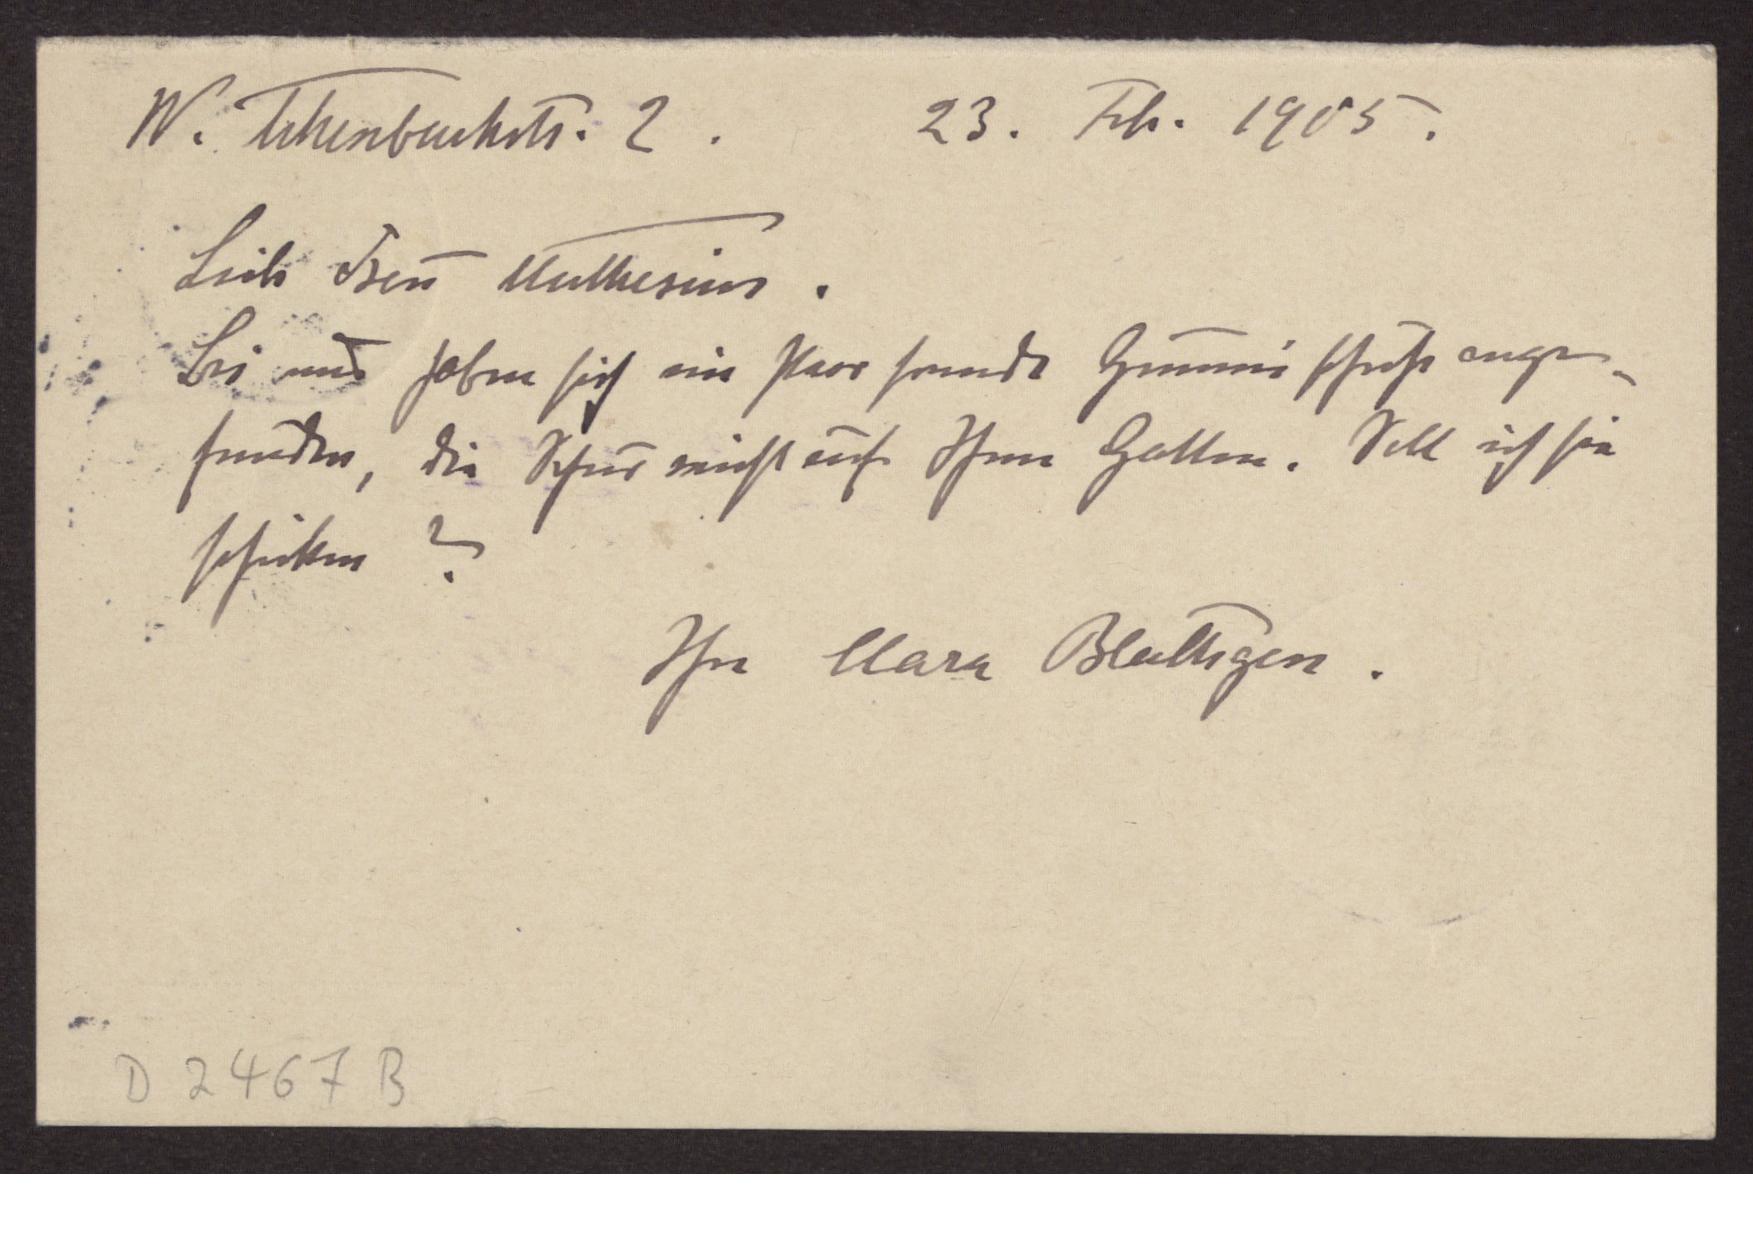 W. Eichenbachstr. 2. 23. Feb. 1905.
Liebe Frau Muthesius.
Bei uns haben sich ein Paar fremde Gummischuhe ange-
funden, die Spur weist auf Ihren Gatten. Soll ich sie
schicken?
Ihre Clara Blüthgen.
D 2467 B